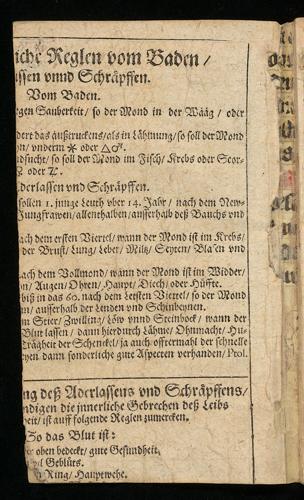 liche Reglen vom Baden /
lassen vnnd Schräpffen.
Vom Baden.
egen Sauberkeit / so der Mond in der Wääg / oder
dert das äußtruckens / als in Lähmung / so soll der Mond
on / vnderm ⚹ oder △♂.
dsucht / so soll der Mond im Fisch / Krebs oder Scor-
oder
derlassen vnd Schräpffen.
sollen 1. junge Leuth vber 14. Jahr / nach dem New-
Jungfrawen / allenthalben / ausserhalb deß Bauchs vnd
ach dem ersten Viertel / wann der Mond ist im Krebs /
der Brust / Lung / Leber / Miltz / Seyten / Blasen vnd
nach dem Vollmond / wann der Mond ist im Widder /
on / Augen / Ohren / Haupt / Diech / oder Hüffte.
biß in das 60. nach dem Letsten Viertel / so der Mond
nn / ausserhalb der Linden vnd Schinbeynen.
m Stier / Zwilling / Löw vnnd Steinbock / wann der
Blut lassen / dann hierdurch Lähme / Ohnmacht / Hu-
Trägheit der Schenckel / ja auch offtermahl der schnelle
eyen dann sonderliche gute Aspecten verhanden / Ptol.
ng deß Aderlassens vnd Schräpffens /
ndigen die jnnerliche Gebrechen deß Leibs
heit / ist auff folgende Reglen zumercken.
So das Blut ist:
oben bedeckt / gute Gesundheit.
Geblürs.
Ring / Hauptwehe.